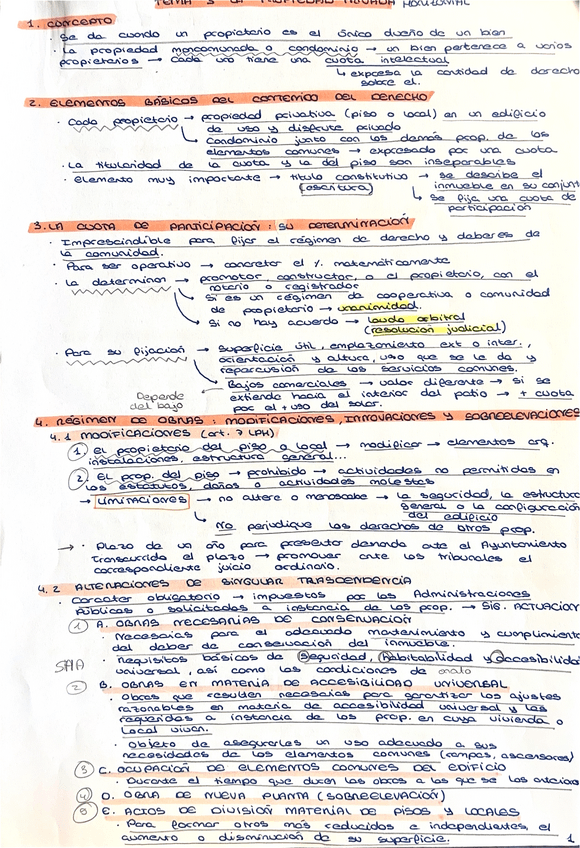 TEMA 3 LA PROPIEDAD PRIVADA HORIZONTAL
1. CONCEPTO
· Se da cuando un propietario es el único dueño de un bien
· La propiedad mancomunada o condominio → un bien pertenece a varios
propietarios → Cada uno tiene una cuota intelectual
↳ expresa la cantidad de derecho
sobre el.
2. ELEMENTOS BÁSICOS DEL CONTENIDO DEL DERECHO
· Cada propietario → propiedad privativa (piso o local) en un edificio
de uso y disfrute privado
↳ Condominio junto con los demás prop. de los
elementos comunes → expresado por una cuota
· La titularidad de la cuota y la del piso son inseparables
· elemento muy importante → título constitutivo → se describe el
(escritura) inmueble en su conjunt
↳ se fija una cuota de
participación
3. LA CUOTA DE PARTICIPACIÓN: SU DETERMINACIÓN
· Imprescindible para fijar el régimen de derecho y deberes de
la comunidad.
· Para ser operativo → concretar el % matemáticamente
· La determinan → promotor, constructor, o el propietario, con el
notario o registrador
↳ Si es un régimen de cooperativa o comunidad
de propietario → unanimidad.
↳ Si no hay acuerdo → laudo arbitral
(resolución judicial)
· Para su fijación → Superficie útil, emplazamiento ext o inter.,
orientación y altura, uso que se le da y
repercusión de los servicios comunes.
↳ Bajos comerciales → valor diferente → si se
Depende
del bajo
extiende hacia el interior del patio → + cuota
por el + uso del solar.
4. RÉGIMEN DE OBRAS: MODIFICACIONES, INNOVACIONES Y SOBREELEVACIONES
4.1 MODIFICACIONES (art. 7 LPH)
① El propietario del piso o local → modificar → elementos arq.
instalaciones, estructura general...
② EL prop. del piso → prohibido → actividades no permitidas en
los estatutos, daños o actividades molestas
→ LIMITACIONES → no altere o menoscabe → la seguridad, la estructura
general o la configuración
del edificio
↳ No perjudique los derechos de otros prop.
→ · Plazo de un año para presentar demanda ante el Ayuntamiento
Transcurrido el plazo → promover ante los tribunales el
correspondiente juicio ordinario.
4.2 ALTERACIONES DE SINGULAR TRASCENDENCIA
· Carácter obligatorio → impuestos por las Administraciones
Públicas o solicitados a instancia de los prop. → SIG. ACTUACION
① A. OBRAS NECESARIAS DE CONSERVACIÓN
· Necesarias para el adecuado mantenimiento y cumplimiento
del deber de conservación del inmueble.
SHA
· Requisitos básicos de Seguridad, Habitabilidad y accesibilida
universal, así como las condiciones de ornato
② B. OBRAS EN MATERIA DE ACCESIBILIDAD UNIVERSAL
· Obras que resulten necesarias para garantizar los ajustes
razonables en materia de accesibilidad universal y las
requeridas a instancia de los prop. en cuya vivienda o
local vivan.
· Objeto de asegurarles un uso adecuado a sus
necesidades de los elementos comunes (rampas, ascensores)
③ C. OCUPACIÓN DE ELEMENTOS COMUNES DEL EDIFICIO
· Durante el tiempo que duren las obras a las que se los anterior
④ D. OBRA DE NUEVA PLANTA (SOBREELEVACIÓN)
⑤ E. ACTOS DE DIVISIÓN MATERIAL DE PISOS Y LOCALES
· Para formar otros más reducidos e independientes, el
aumento o disminución de su superficie.
1